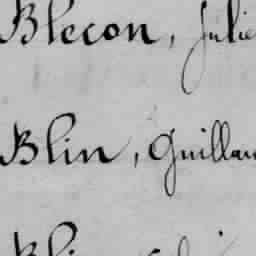 Blecon, Julie
Blin, Guillau